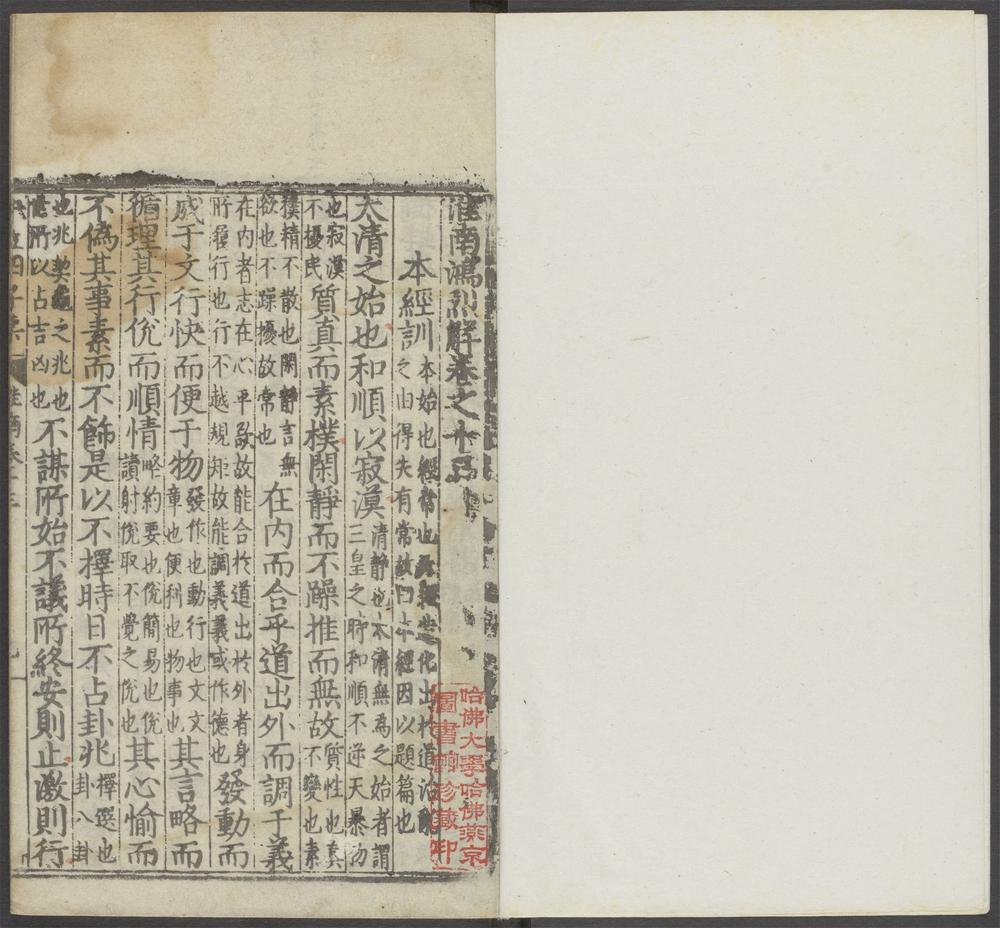 淮南鴻烈解卷之十
本經訓 本始也經常也 造化出於道治
之由得失有常故曰本經因以題篇也
太清之始也和順以寂漠 清静也太清無為之始者謂
三皇之時和順不逆天暴物
也寂漠
不擾民 質真而素樸閑静而不躁推而無故 質性也真
不變也素
樸精不散也閑静言無
欲也不躁擾故常也 在内而合乎道出外而調于義
在内者志在心平欲故能合於道出於外者身
所履行也行不越規矩故能調義義或作德也 發動而
成于文行快而便于物 發作也動行也文文
章也便利也物事也 其言略而
循理其行侻而順情 略約要也侻簡易也侻
讀射侻取不覺之侻也 其心愉而
不偽其事素而不飾是以不擇時日不占卦兆 擇選也
卦八卦
也兆契龜之兆也
所以占吉凶也 不謀所始不議所終安則止激則行
四子
哈佛大學哈佛燕京
圖書館珍藏印